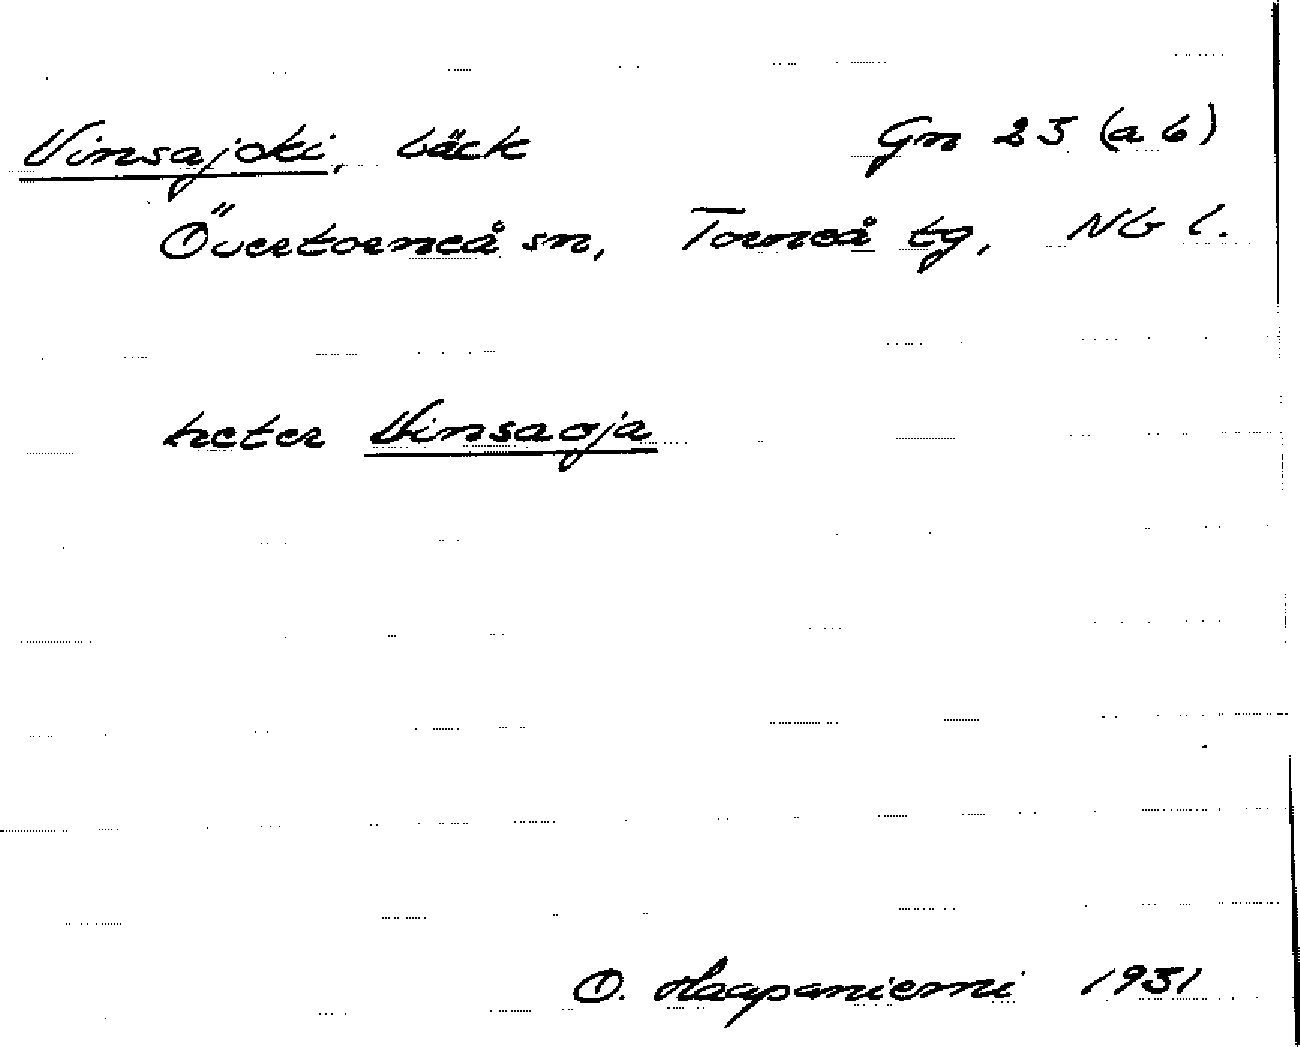 Vinsajoki, bäck Gn 25 (a b)
Övertorneå sn, Torneå tg, Nb l.
heter Vinsaoja
O. Haapaniemi 1931